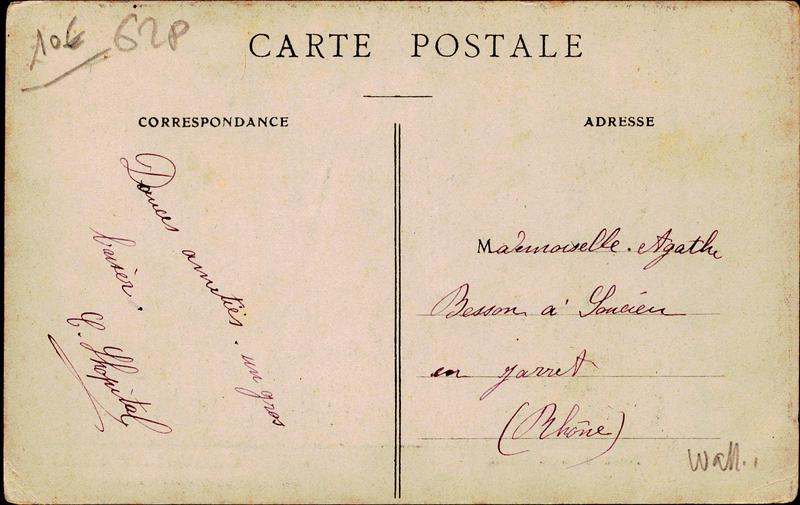 10€ 62P
CARTE POSTALE
CORRESPONDANCE
ADRESSE
Douces amitiés. un gros
baiser.
C. Lhopital
Mademoiselle. Agathe
Besson à Soucieu
en jarret
(Rhône)